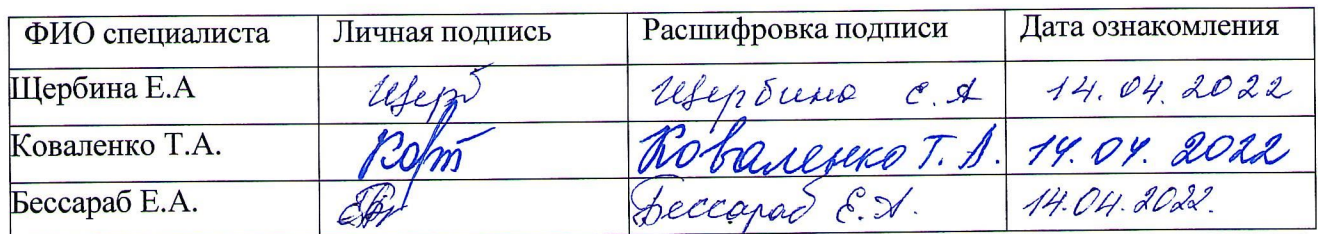 ФИО специалиста Личная подпись Расшифровка подписи Дата ознакомления
Щербина Е.А Щерб Щербина Е.А 14.04.2022
Коваленко Т.А. Коваленко Т.А. 14.04.2022
Бессараб Е.А. Бессараб Е.А. 14.04.2022.